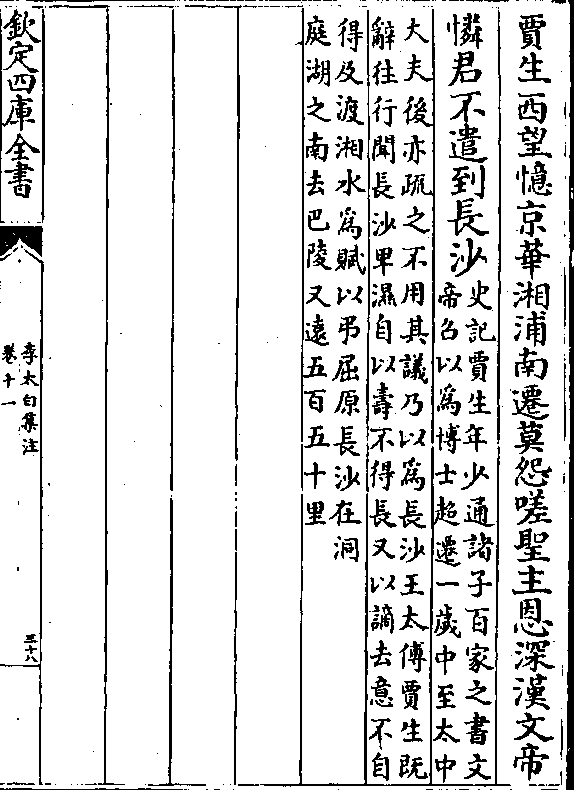 賈生西望憶京華湘浦南遷莫怨嗟聖主恩深漢文帝
憐君不遣到長沙
史記賈生年少通諸子百家之書文
帝召以為博士超遷一歲中至太中
大夫後亦疏之不用其議乃以為長沙王太傅賈生既
辭往行聞長沙卑濕自以壽不得長又以謫去意不自
得及渡湘水為賦以弔屈原長沙在洞
庭湖之南去巴陵又遠五百五十里
欽定四庫全書
李太白集注
卷十一
三十八